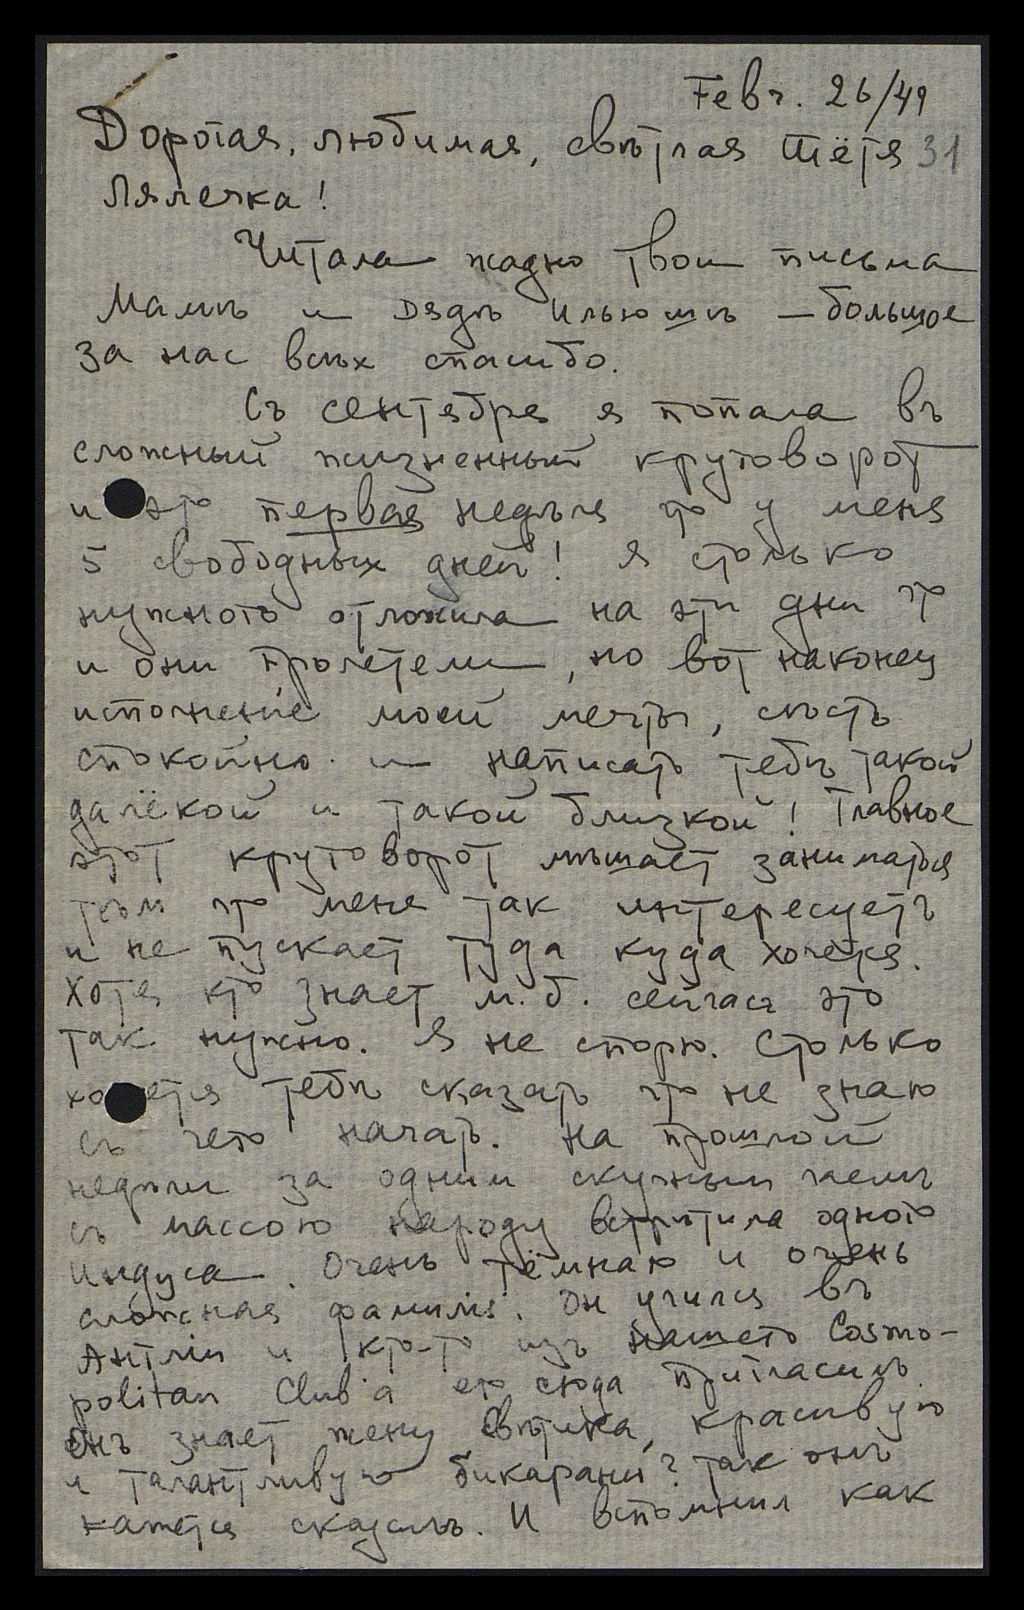 Febr. 26/49
Дорогая, любимая, свѣтлая тётя 31
Лялечка!
Читала жадно твои письма
Мамѣ и Дядѣ Ильюшѣ — большое
за нас всѣх спасибо.
Съ сентября я попала въ
сложный жизненный круговорот
и это первая недѣля что у меня
5 свободных дней! Я столько
нужного отложила на эти дни что
и они пролетели, но вот наконец
исполненіе моей мечты, сѣсть
спокойно и написать тебѣ такой
далёкой и такой близкой! Главное
этот круговорот мѣшает заниматься
тѣм что меня так интересуетъ
и не пускает туда куда хочется.
Хотя кто знает м. б. сейчас это
так нужно. Я не спорю. Столько
хочется тебѣ сказать что не знаю
съ чего начать. На прошлой
недѣли за одним скучным чаемъ
съ массою народу встрѣтила одного
Индуса. Очень тёмная и очень
сложная фамилія. Он учился въ
Англіи и кто-то изъ нашего Cosmo-
politan Club'а его сюда пригласилъ.
Онъ знает жену Свѣтика, красивую
и талантливую бикарани? так онъ
кажется сказалъ. И вспомнил как